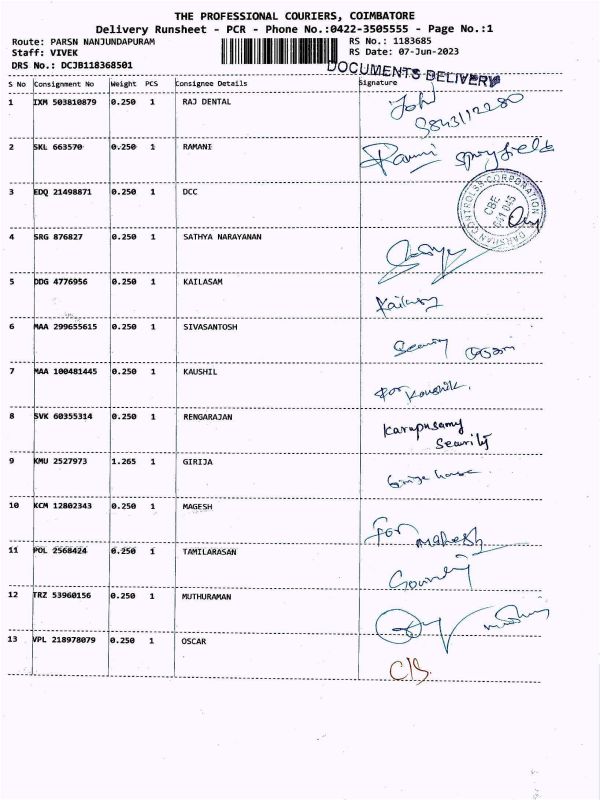 THE PROFESSIONAL COURIERS, COIMBATORE
Delivery Runsheet - PCR - Phone No.:0422-3505555 - Page No.:1
Route: PARSN NANJUNDAPURAM RS No.: 1183685
Staff: VIVEK RS Date: 07-Jun-2023
DRS No.: DCJB118368501 DOCUMENTS DELIVERY
S No Consignment No Weight PCS Consignee Details Signature
1 IXM 503810879 0.250 1 RAJ DENTAL John
9843112280
2 SKL 663570 0.250 1 RAMANI Ramni
3 EDQ 21498871 0.250 1 DCC
CORPORATION
CBE
641 045
4 SRG 876827 0.250 1 SATHYA NARAYANAN
5 DDG 4776956 0.250 1 KAILASAM
6 MAA 299655615 0.250 1 SIVASANTOSH Security
7 MAA 100481445 0.250 1 KAUSHIL for Koushik.
8 SVK 60355314 0.250 1 RENGARAJAN Karupusamy
Security
9 KMU 2527973 1.265 1 GIRIJA
10 KCM 12802343 0.250 1 MAGESH For Mahesh
11 POL 2568424 0.250 1 TAMILARASAN
12 TRZ 53960156 0.250 1 MUTHURAMAN
13 VPL 218978079 0.250 1 OSCAR